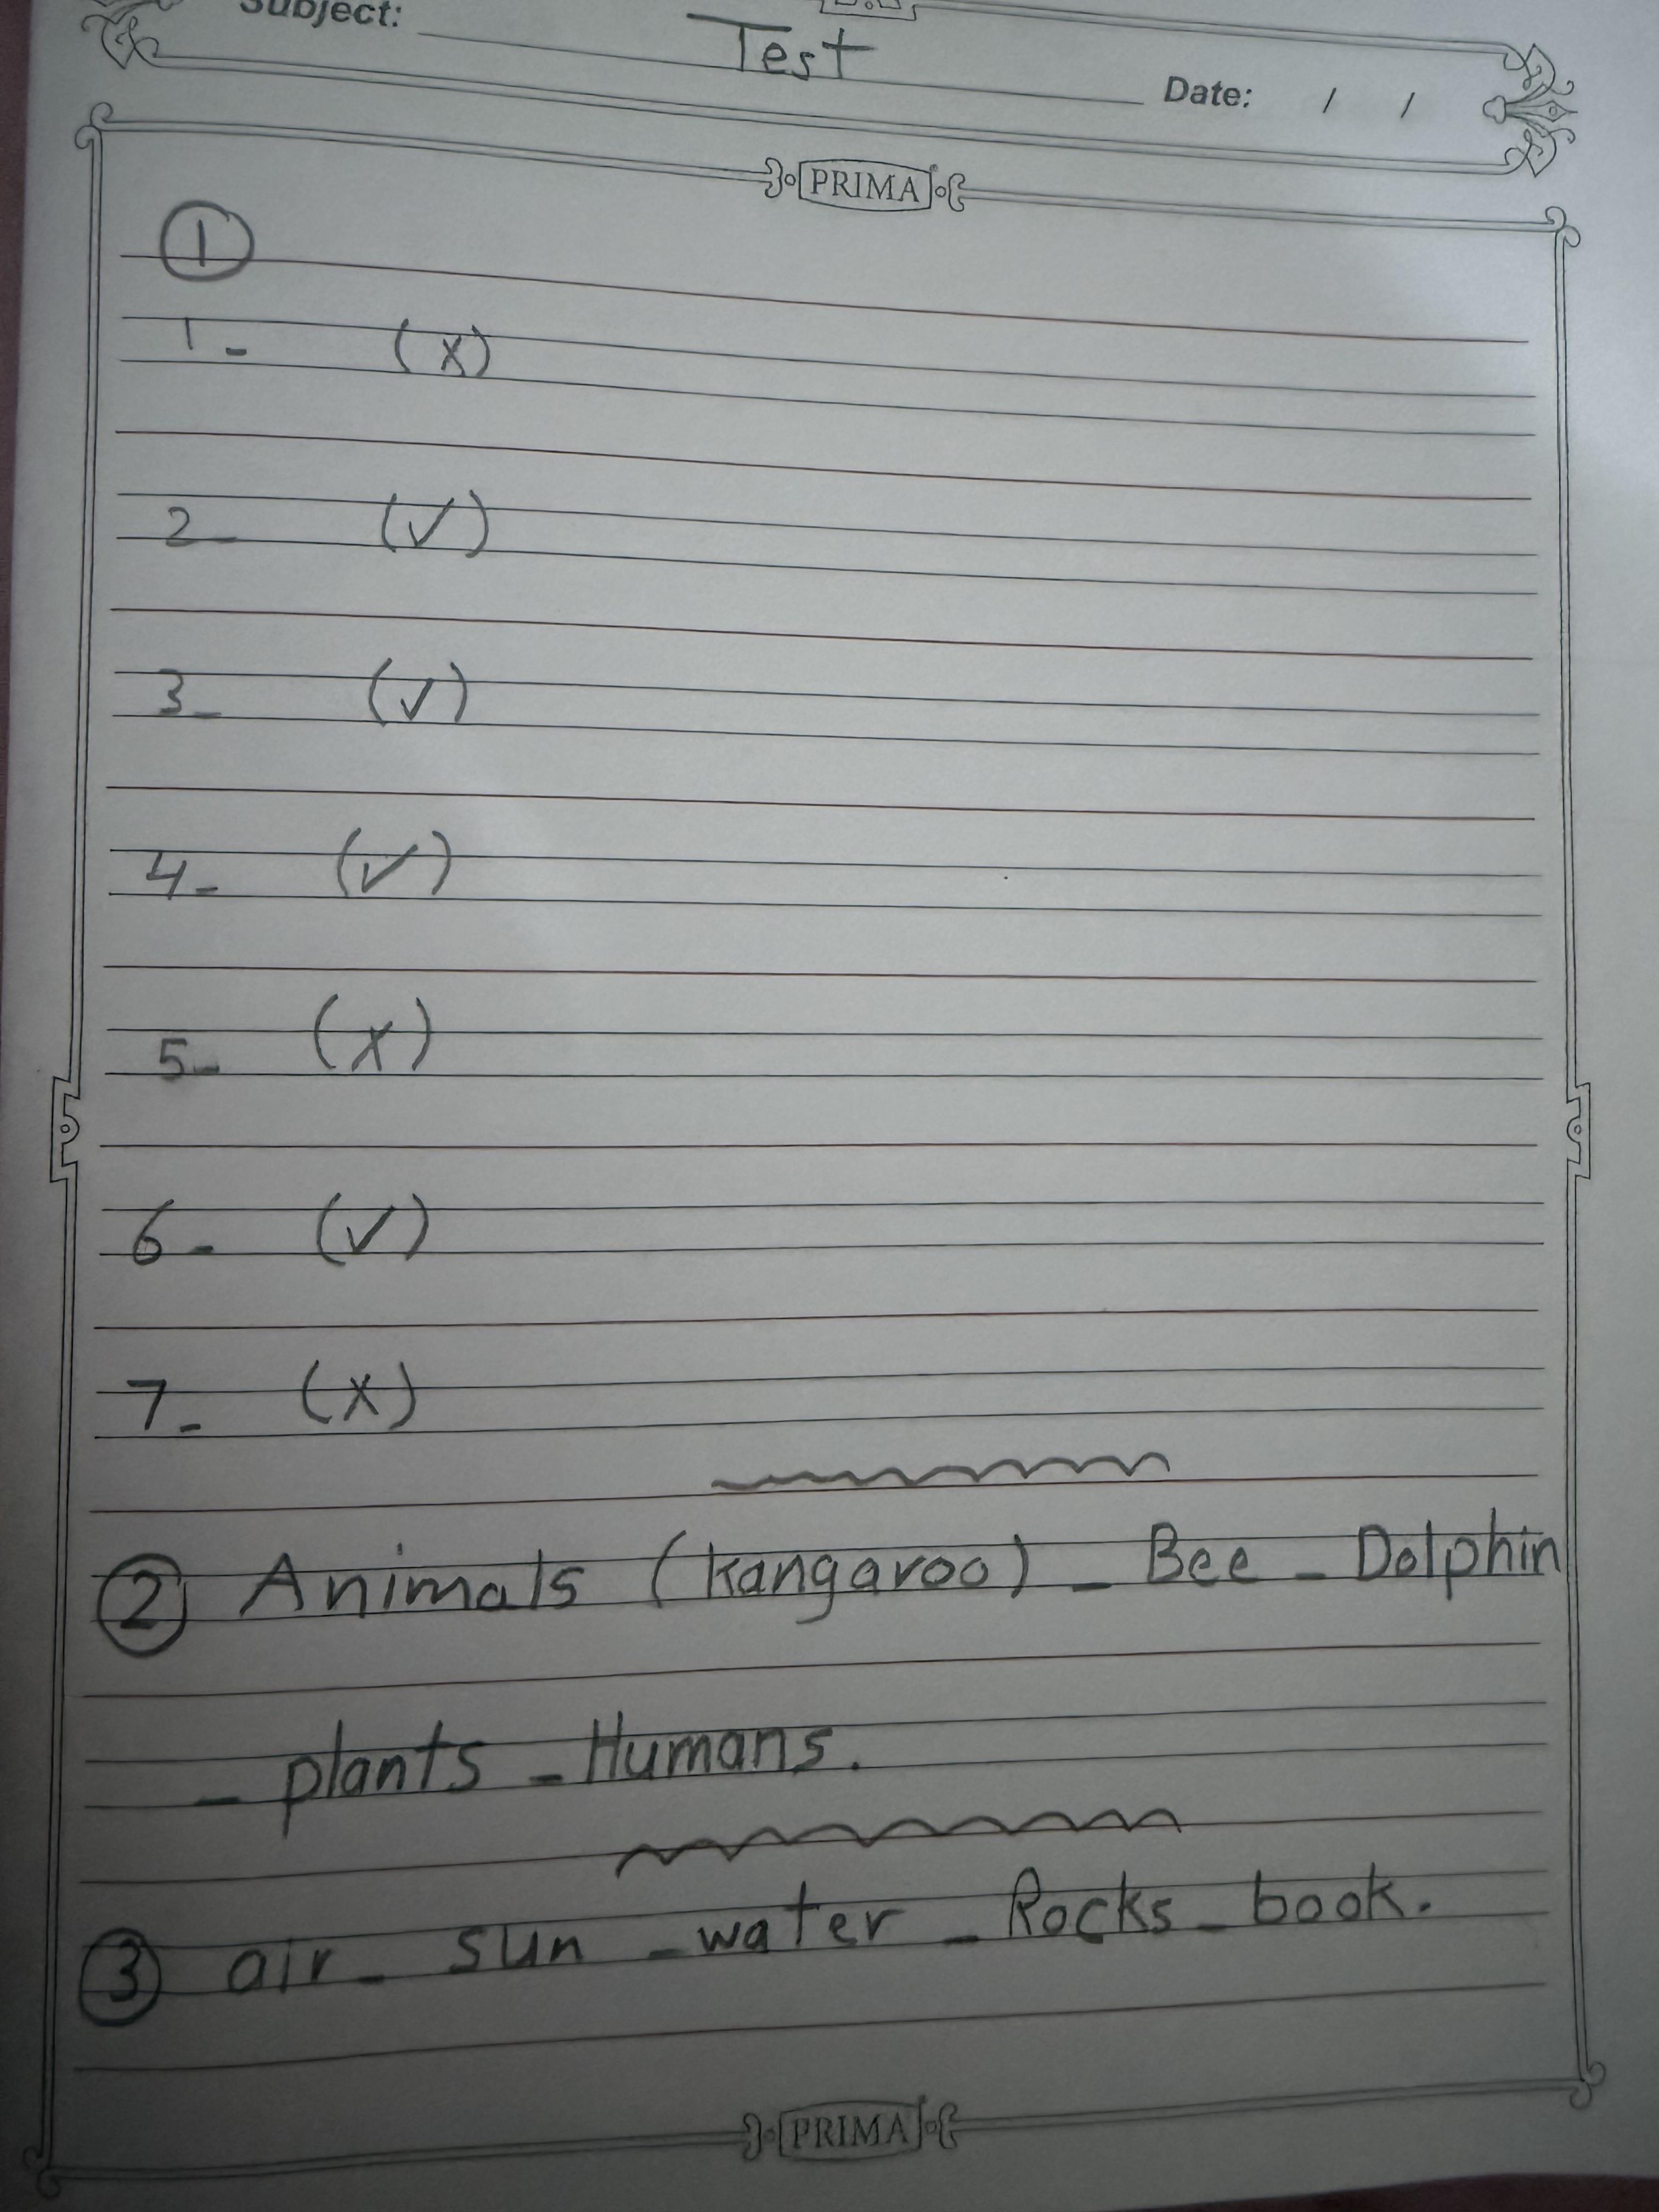 Subject:
Test
Date: / /
PRIMA
1
1- (x)
2- (✓)
3- (✓)
4- (✓)
5- (x)
6- (✓)
7- (x)
2 Animals (kangaroo) - Bee - Dolphin
- plants - Humans.
3 air - sun - water - Rocks - book.
PRIMA